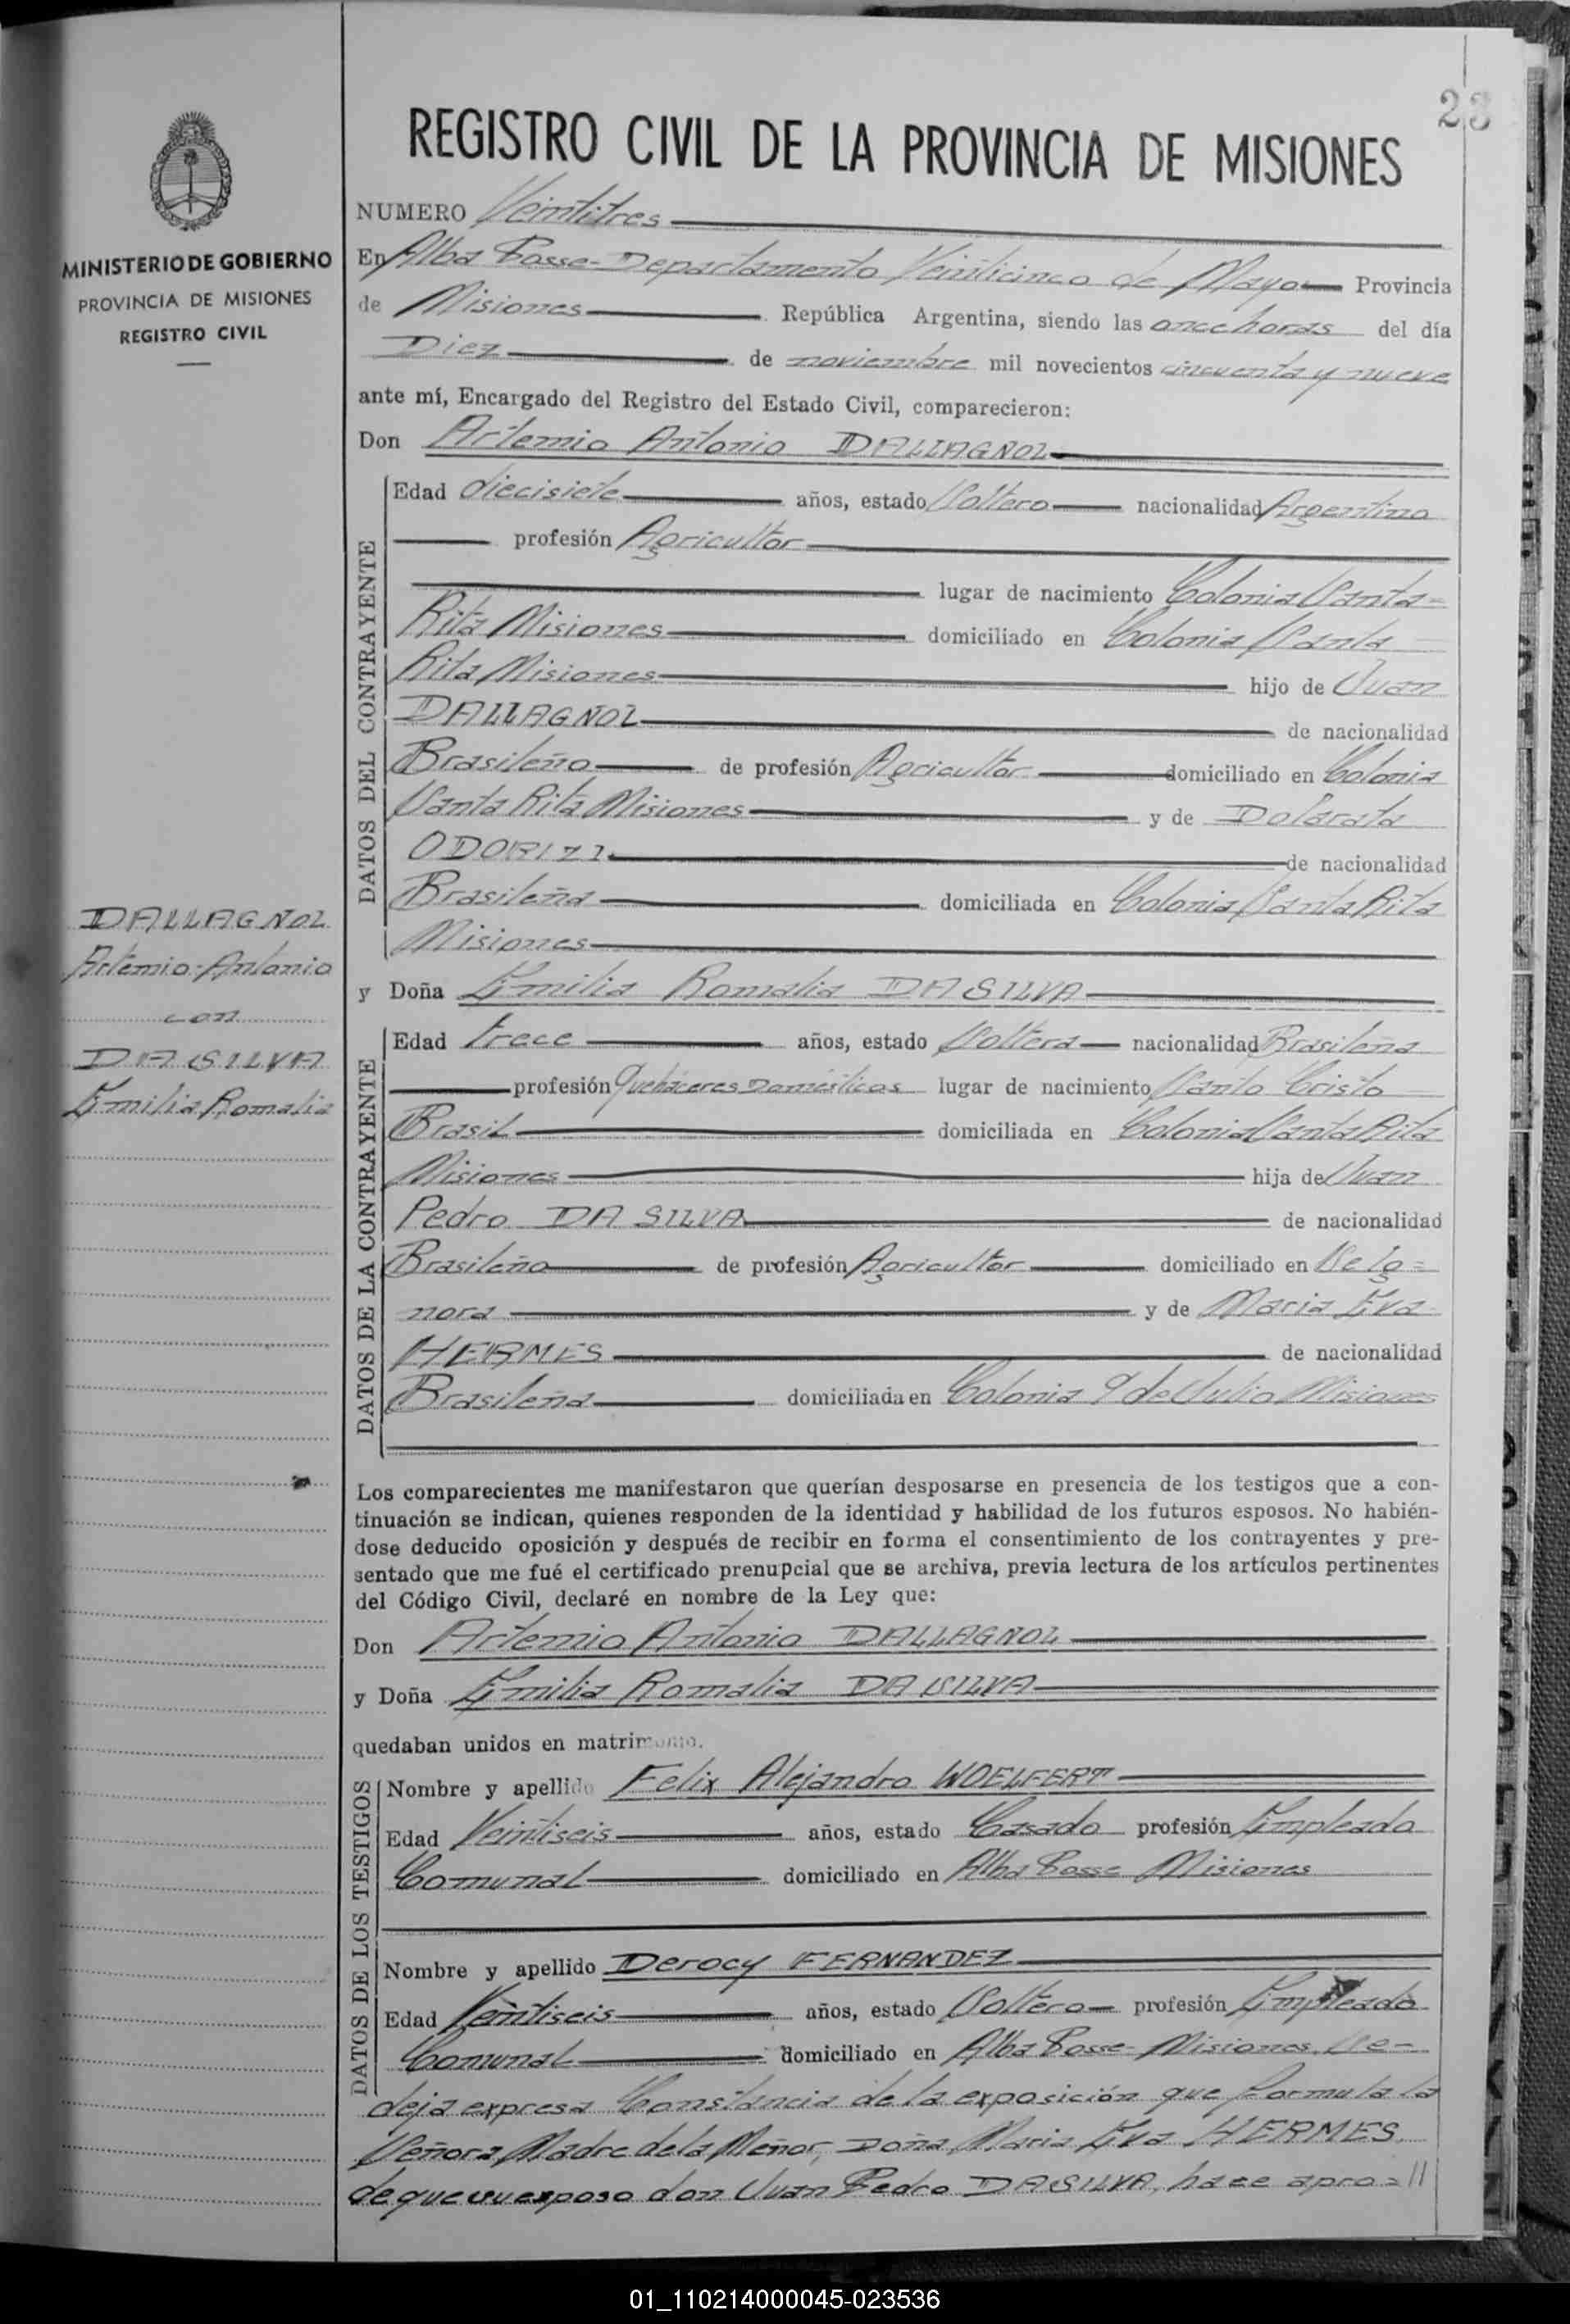 23
REGISTRO CIVIL DE LA PROVINCIA DE MISIONES
MINISTERIO DE GOBIERNO
PROVINCIA DE MISIONES
REGISTRO CIVIL
NUMERO Veintitres
En Alba Posse - Departamento Veinticinco de Mayo Provincia
de Misiones República Argentina, siendo las once horas del día
Diez de noviembre mil novecientos cincuenta y nueve
ante mí, Encargado del Registro del Estado Civil, comparecieron:
Don Artemio Antonio DALLAGNOL
DATOS DEL CONTRAYENTE
Edad diecisiete años, estado Soltero nacionalidad Argentino
profesión Agricultor
lugar de nacimiento Colonia Santa=
Rita Misiones domiciliado en Colonia Santa
Rita Misiones hijo de Juan
DALLAGNOL de nacionalidad
Brasileño de profesión Agricultor domiciliado en Colonia
Santa Rita Misiones y de Dolorata
ODORIZZI de nacionalidad
Brasileña domiciliada en Colonia Santa Rita
Misiones
DALLAGNOL
Artemio Antonio
con
DA SILVA
Emilia Romalia
y Doña Emilia Romalia DA SILVA
DATOS DE LA CONTRAYENTE
Edad trece años, estado Soltera nacionalidad Brasileña
profesión Quehaceres Domésticos lugar de nacimiento Santo Cristo
Brasil domiciliada en Colonia Santa Rita
Misiones hija de Juan
Pedro DA SILVA de nacionalidad
Brasileño de profesión Agricultor domiciliado en Se Ig=
nora y de Maria Eva
HERMES de nacionalidad
Brasileña domiciliada en Colonia 9 de Julio Misiones
Los comparecientes me manifestaron que querían desposarse en presencia de los testigos que a con-
tinuación se indican, quienes responden de la identidad y habilidad de los futuros esposos. No habién-
dose deducido oposición y después de recibir en forma el consentimiento de los contrayentes y pre-
sentado que me fué el certificado prenupcial que se archiva, previa lectura de los artículos pertinentes
del Código Civil, declaré en nombre de la Ley que:
Don Artemio Antonio DALLAGNOL
y Doña Emilia Romalia DA SILVA
quedaban unidos en matrimonio.
DATOS DE LOS TESTIGOS
Nombre y apellido Felix Alejandro WOELFERT
Edad Veintiseis años, estado Casado profesión Empleado
Comunal domiciliado en Alba Posse Misiones
Nombre y apellido Derocy FERNANDEZ
Edad Veintiseis años, estado Soltero profesión Empleado
Comunal domiciliado en Alba Posse - Misiones. Se-
deja expresa Constancia de la exposición que formula la
Señora Madre de la Menor, Doña Maria Eva HERMES.
de que su esposo don Juan Pedro DA SILVA, hace apro=//
01_110214000045-023536